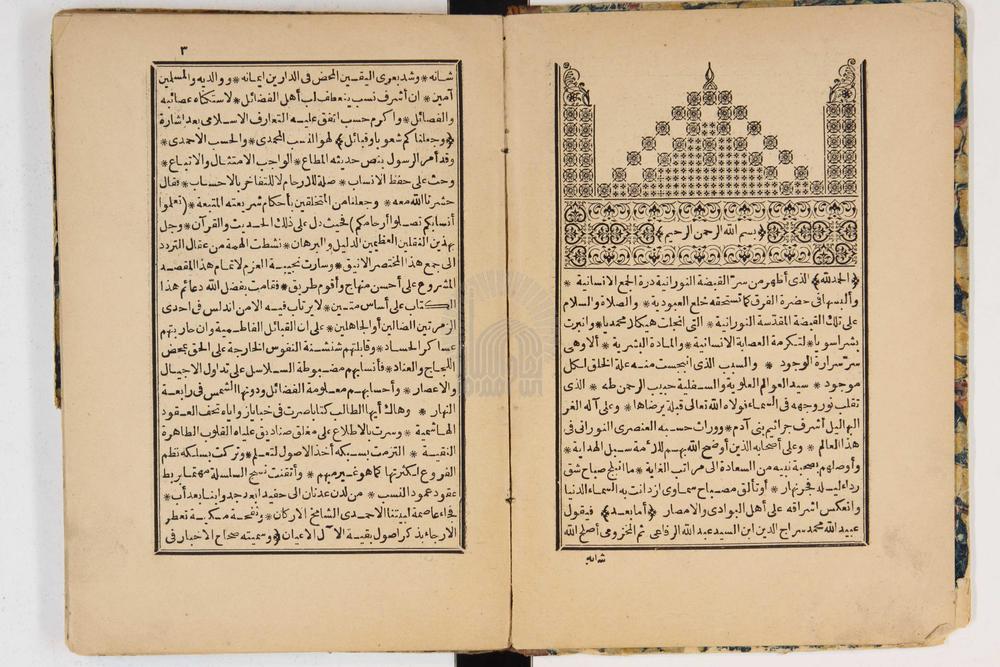 بسم الله الرحمن الرحيم
﴿الحمد لله﴾ الذي أظهر من سر القبضة النورانية درة الجمع الانسانية *
وألبسها في حضرة الفرق كما تستحقه خلع العبودية * والصلاة والسلام
على تلك القبضة المقدسة النورانية * التي انجلت هيكلا محمديا * وانبرت
بشرا سويا * لتكرمة العصابة الانسانية * والمادة البشرية * ألا وهي
سر سرارة الوجود * والسبب الذي انبجست منه علة الخلق لكل
موجود * سيد العوالم العلوية والسفلية حبيب الرحمن طه * الذي
تقلب نور وجهه في السماء فولاه الله تعالى قبلة يرضاها * وعلى آله الغر
البهاليل أشرف جراثيم بني آدم * ووراث حسبه العنصري النوراني في
هذا العالم * وعلى أصحابه الذين أوضح الله بهم للأمة سبل الهداية *
وأوصلهم بصحبة نبيه من السعادة الى مراتب الغاية * ما انبلج صباح شق
رداء ليله فجر نهار * أو تألق مصباح سماوي ازدانت به السماء الدنيا
وانعكس اشراقه على أهل البوادي والامصار ﴿أما بعد﴾ فيقول
عبيد الله محمد سراج الدين ابن السيد عبد الله الرفاعي ثم المخزومي أصلح الله
شانه
٣
شانه * وشد بعرى اليقين المحض في الدارين ايمانه * ووالديه والمسلمين
آمين * ان أشرف نسب ينعطف اب أهل الفضائل * لاستكناه عصائبه
والفصائل * واكرم حسب اتفق عليه التعارف الاسلامي بعد اشارة
﴿وجعلناكم شعوبا وقبائل﴾ لهو النسب المحمدي * والحسب الاحمدي *
وقد أمر الرسول بنص حديثه المطاع * الواجب الامتثال والاتباع *
وحث على حفظ الانساب * صلة للارحام لا للتفاخر بالاحساب * فقال
حشرنا الله معه * وجعلنا من المتخلقين بأحكام شريعته المتبعة * (تعلموا
أنسابكم تصلوا أرحامكم) فحيث دل على ذلك الحديث والقرآن * وجل
بهذين الثقلين العظيمين الدليل والبرهان * نشطت الهمة من عقال التردد
الى جمع هذا المختصر الانيق * وسارت نجيبة العزم لاتمام هذا المقصد
المشروع على أحسن منهاج وأقوم طريق * فقامت بفضل الله دعائم هذا
الكتاب على أساس متين * لا يرتاب فيه الا من اندلس في احدى
الزمرتين الضالين أو الجاهلين * على ان القبائل الفاطمية وان حاربتهم
عساكر الحساد * وقابلتهم شنشنة النفوس الخارجة على الحق بمحض
اللجاج والعناد * فأنسابهم مضبوطة السلاسل على تداول الاجيال
والاعصار * وأحسابهم معلومة الفضائل ودونها الشمس في رابعة
النهار * وهاك أيها الطالب كتابا صرت في خبايا زواياه تحف العقود
الهاشمية * وسرت بالاطلاع على مغلق صناديق علياه القلوب الطاهرة
النقية * التزمت بسبكه أخذ الاصول لتعلم * وتركت بسلكه نظم
الفروع لكثرتها كما هو غير مبهم * وأتقنت نسج السلسلة مهتما بربط
عقود عمود النسب * من لدن عدنان الى حفيد ابعد جد وابنا بعد أب *
فجاء عاصمة لبيتنا الاحمدي الشامخ الاركان * ونفحة مكية تعطر
الارجاء بذكر أصول بقية الآل الاعيان ﴿وسميته صحاح الاخبار في